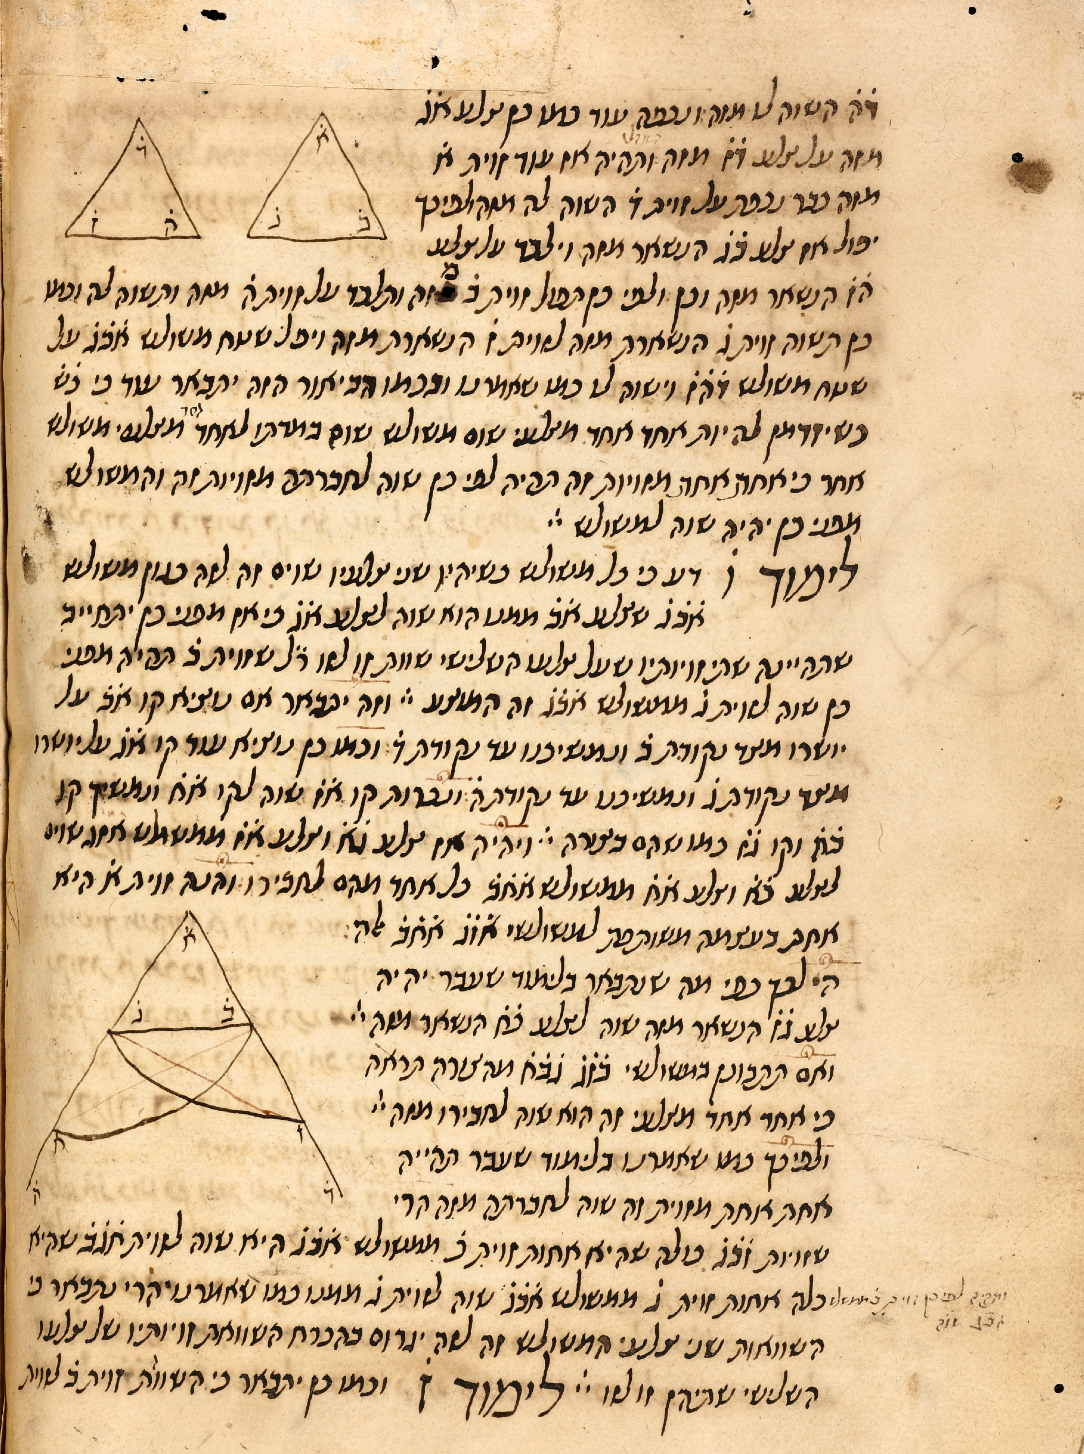 ד̇ה̇ השוה לו מזה ונכפה עוד כמו כן צלע א̇ג̇
מזה על צלע ד̇ז̇ מזה ותהיה אז עוד זוית א̇
מזה כבר נכפת על זוית ד̇ השוה לה מזה ולפיכך
יפול אז צלע ב̇ג̇ הנשאר מזה וילבד על צלע
ה̇ז̇ הנשאר מזה וכן ולפי כן תפול זוית ב̇ מזה ותלבד על זוית ה̇ מזה ותשוה לה וכמו
כן תשוה זוית ג̇ הנשארת מזה לזוית ז̇ הנשארת מזה ויפול שטח משולש א̇ב̇ג̇ על
שטח משולש ד̇ה̇ז̇ וישוה לו כמו שאמרנו ובכמו הביאור הזה יתבאר עוד כי
כשיזדמן להיות אחד אחד מצלעי שום משולש שוה במדתו לאחד אחד מצלעי משולש
אחר כי אחת אחת מזויות זה תהיה לפי כן שוה לחברתה מזויות זה והמשולש
מפני כן יהיה שוה למשולש
לימוד ו̇ דע כי כל משולש כשיהיו שני צלעיו שוים זה לזה כגון משולש
א̇ב̇ג̇ שצלע א̇ב̇ ממנו הוא שוה לצלע א̇ג̇ כי אז מפני כן יתחייב
שתהיינה שתי זויותיו שעל צלעו השלישי שוות זו לזו ר̇ל שזוית ב̇ תהיה מפני
כן שוה לזוית ג̇ ממשולש א̇ב̇ג̇ זה המוצע וזה יתבאר אם נוציא קו א̇ב̇ על
יושרו מצד נקודת ב̇ ונמשיכנו עד נקודת ד̇ וכמו כן נוציא עוד קו א̇ג̇ על יושרו
מצד נקודת ג̇ ונמשיכנו עד נקודת ה̇ ונכרות קו א̇ז̇ שוה לקו א̇ח̇ ונמשיך קו
ב̇ח̇ וקו ג̇ז̇ כמו שהם בצורה ויהיה אז צלע ג̇א̇ וצלע א̇ז̇ ממשולש א̇ז̇ג̇ שוים
לצלע ב̇א̇ וצלע א̇ח̇ ממשולש א̇ח̇ב̇ כל אחד מהם לחבירו והנה זוית א̇ היא
אחת בעצמה משותפת למשולשי א̇ז̇ג̇ א̇ח̇ב̇
הי̇ לכך כפי מה שנתבאר בלימוד שעבר יהיה
צלע ג̇ז̇ הנשאר מזה שוה לצלע ב̇ח̇ הנשאר מזה
ואם תתבונן במשולשי ב̇ז̇ג̇ ג̇ב̇ח̇ מהצורה תראה
כי אחד אחד מצלעי זה הוא שוה לחבירו מזה
ולפיכך כמו שאמרנו בלימוד שעבר תהייה
אחת אחת מזוית זה שוה לחברתה מזה הרי
שזויות ז̇ב̇ג̇ כולה שהיא אחות זוית ב̇ ממשולש א̇ב̇ג̇ היא שוה לזוית ח̇ג̇ב̇ שהיא
כלה אחות זוית ג̇ ממשולש א̇ב̇ג̇ שוה לזוית ג̇ ממנו כמו שאמרנו הרי נתבאר כי
ותהיה לפיכך זוית ב̇ ממשולש
א̇ב̇ג̇ שוה
השוואות שני צלעי המשולש זה לזה יגרום בהכרח השוואת זויותיו של צלעו
השלישי שתיהן זו לזו לימוד ז̇ וכמו כן יתבאר כי השוות זוית ב̇ לזוית
א̇
ב̇
ג̇
ד̇
ה̇
ז̇
א̇
ב̇
ג̇
ח̇
ז̇
ה̇
ד̇